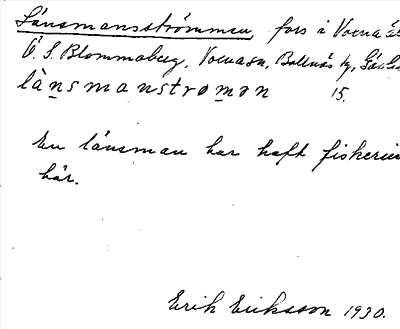 Länsmansströmmen, fors i Voxna älv
Ö. S. Blommaberg, Voxnan, Bollnäs
lànsmanstrømən 15.
En länsman har haft fiskerier
här.
Erik Eriksson 1930.